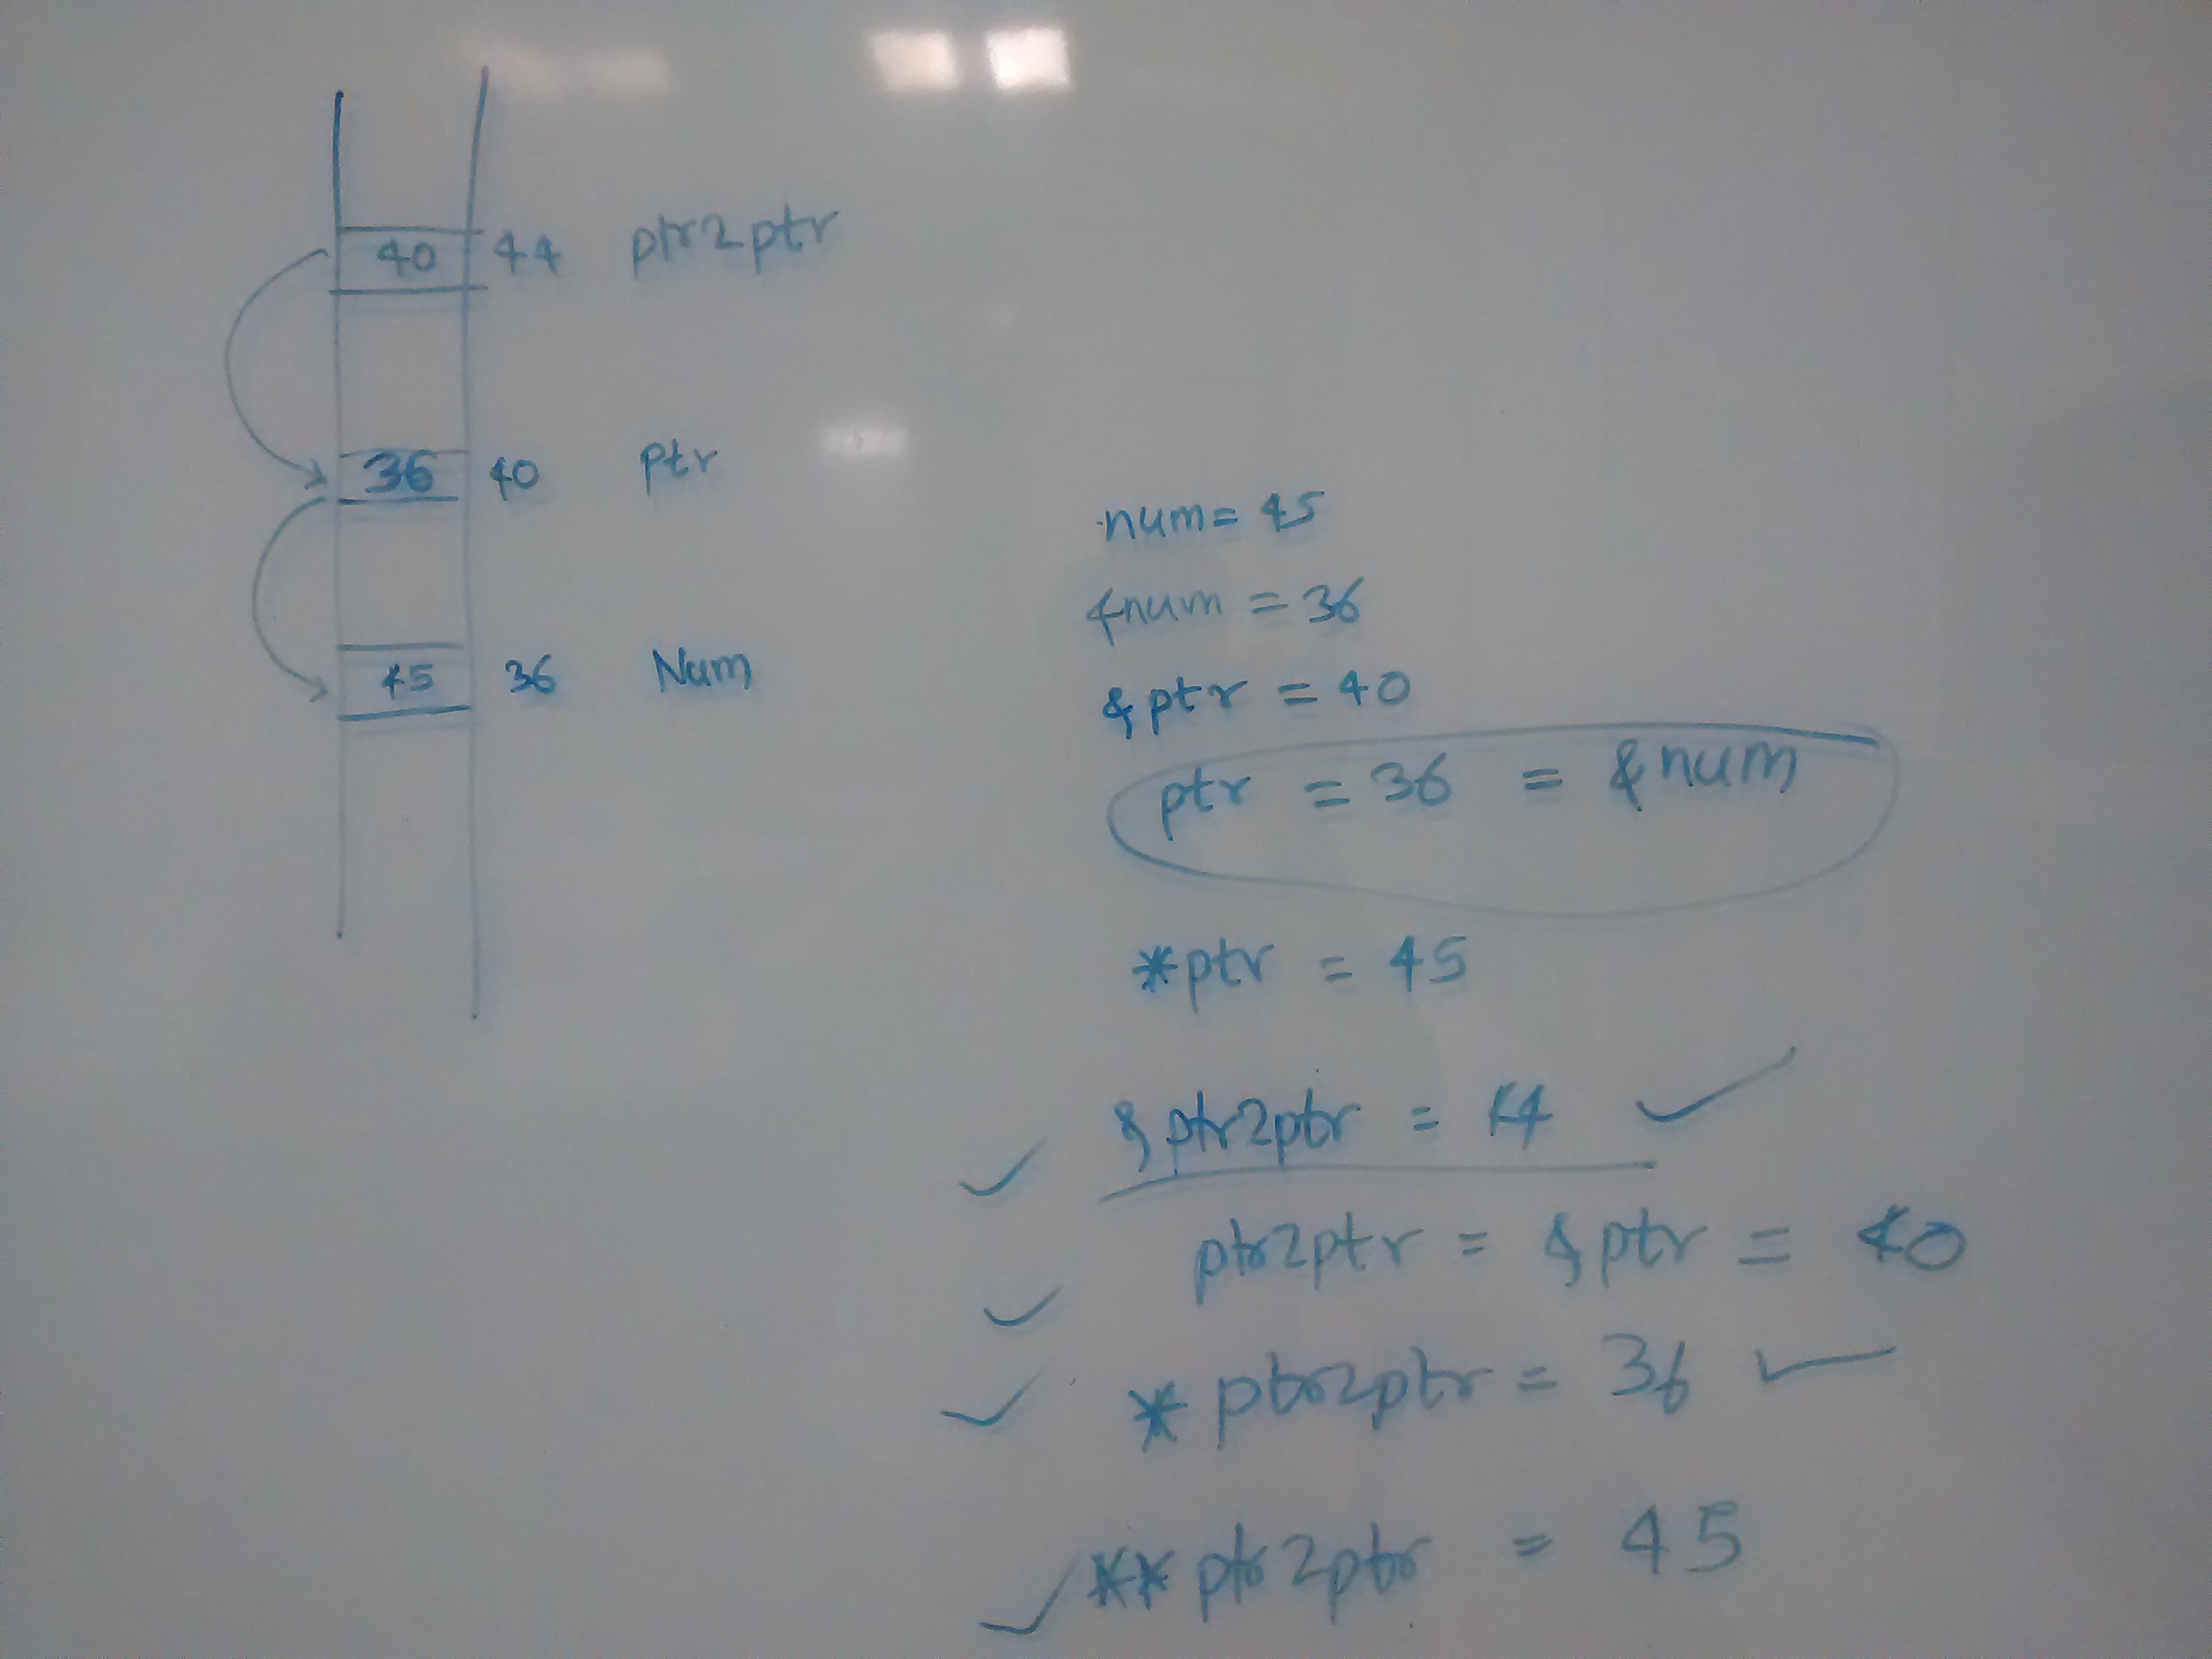 40 44 ptr2ptr
36 40 ptr
45 36 Num
num = 45
&num = 36
&ptr = 40
ptr = 36 = &num
*ptr = 45
&ptr2ptr = 44 ✓
✓
ptr2ptr = &ptr = 40
✓
✓ *ptr2ptr = 36 ✓
✓ **ptr2ptr = 45